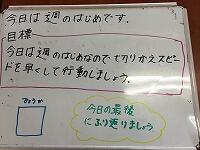 今日は週のはじめです.
目標
今日は週のはじめなので切りかえスピー
ドを早くして行動しましょう.
ひょうか
今日の最後
にふり返りましょう